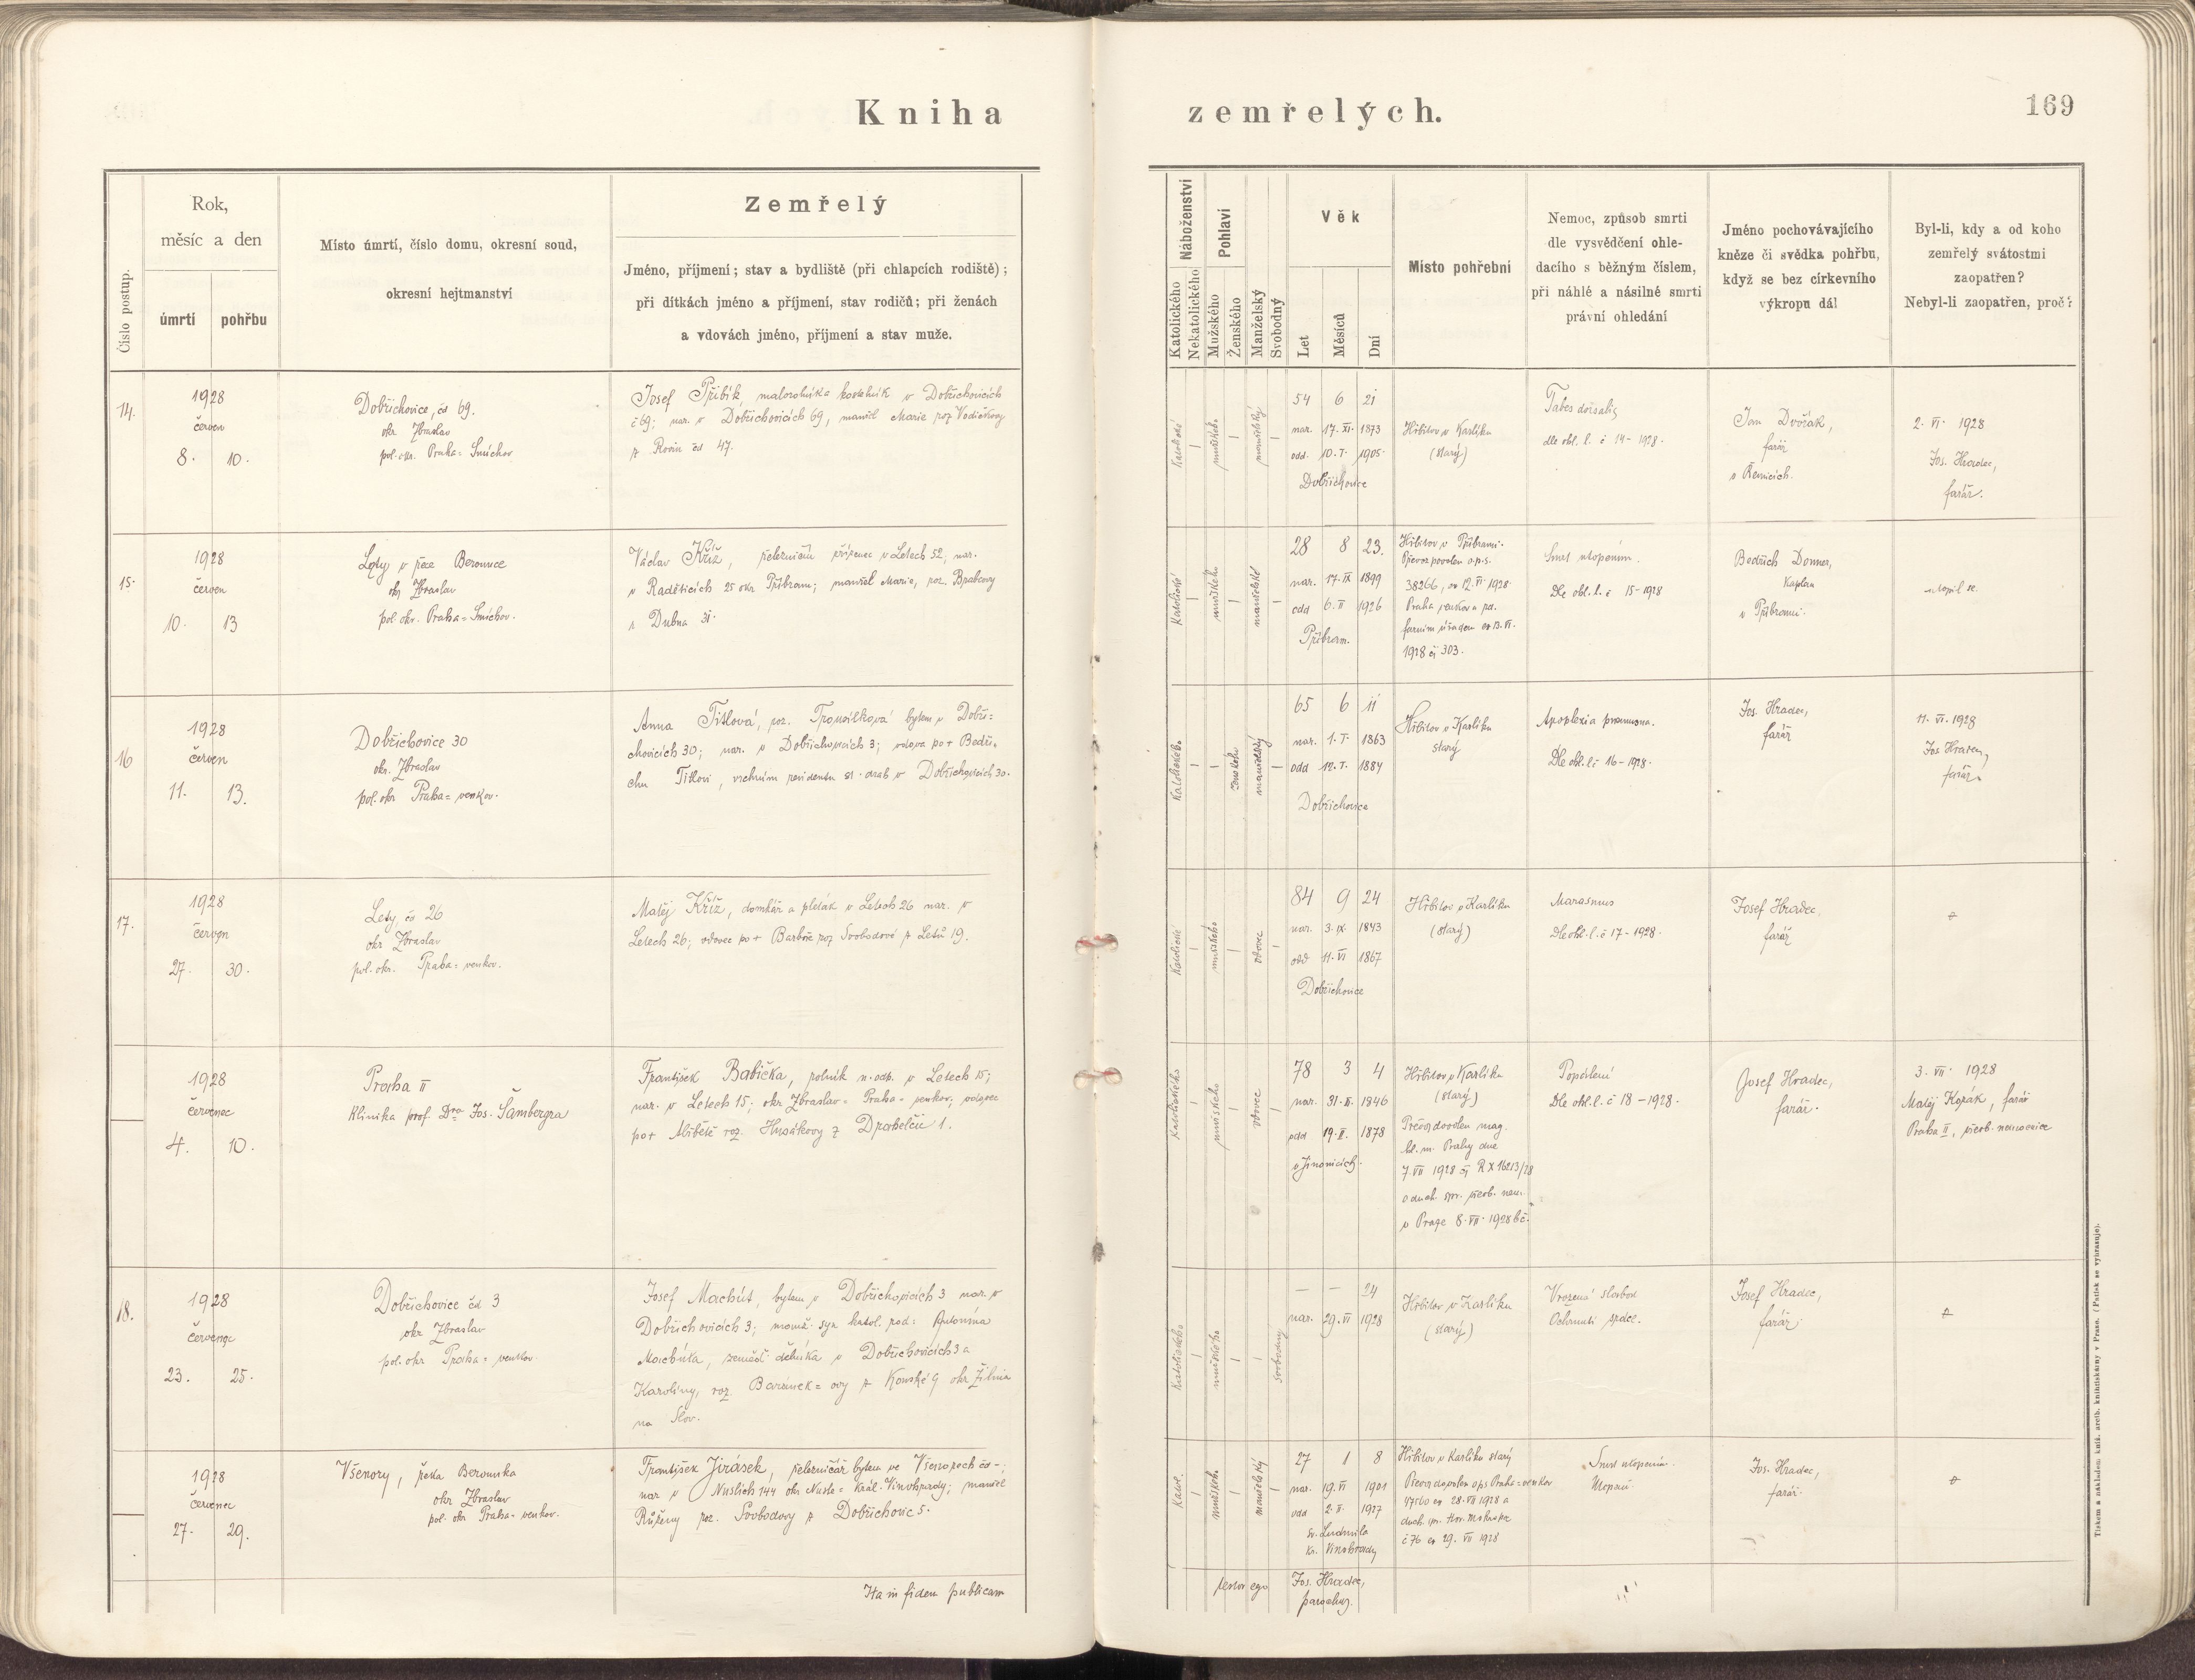 Kniha zemřelých.
169
Číslo postup.
Rok,
měsíc a den
úmrtí
pohřbu
Místo úmrtí, číslo domu, okresní soud,
okresní hejtmanství
Zemřelý
Jméno, příjmení; stav a bydliště (při chlapcích rodiště);
při dítkách jméno a příjmení, stav rodičů; při ženách
a vdovách jméno, příjmení a stav muže.
Náboženství
Katolického
Nekatolického
Pohlaví
Mužského
Ženského
Manželský
Svobodný
Věk
Let
Měsíců
Dní
Místo pohřební
Nemoc, způsob smrti
dle vysvědčení ohle-
dacího s běžným číslem,
při náhlé a násilné smrti
právní ohledání
Jméno pochovávajícího
kněze či svědka pohřbu,
když se bez církevního
výkropu dál
Byl-li, kdy a od koho
zemřelý svátostmi
zaopatřen?
Nebyl-li zaopatřen, proč?
14.
1928
červen
8. 10.
Dobřichovice, čd 69.
okr Zbraslav
pol. okr. Praha=Smíchov
Josef Přibík, kostelník v Dobřichovicích
č 69; nar. v Dobřichovicích 69, manžel Marie roz Vodičkovy
z Rovin čd 47.
Katolické
mužského
manželský
54 6 21
nar. 17. XI. 1873
odd. 10. I. 1905
Dobřichovice
Hřbitov v Karlíku
(starý)
Tabes dorsalis
dle ohl. l. č 14-1928.
Jan Dvořák,
farář
v Řevnicích.
2. VI. 1928
Jos. Hradec,
farář.
15.
1928
červen
10. 13
Lety v řece Berounce
okr Zbraslav
pol okr. Praha=Smíchov.
Václav Kříž, železniční zřízenec v Letech 52, nar.
v Raděticích 25 okr Příbram; manžel Marie, roz. Brabcovy
z Dubna 31.
Katolické
mužského
manželské
28 8 23.
nar. 17. IX 1899
odd 6. II 1926
Příbram.
Hřbitov v Příbrami.
Převoz povolen o.p.s.
38266, 12. VI 1928
Praha venkov a
farním úřadem 13. VI.
1928 čj 303.
Smrt utopením.
Dle ohl. l. č 15-1928
Bedřich Donner,
Kaplan
v Příbrami.
utopil se.
16
1928
červen
11. 13.
Dobřichovice 30
okr. Zbraslav
pol. okr Praha=venkov.
Anna Titlová, roz. bytem v Dobři=
chovicích 30; nar. v Dobřichovicích 3; vdova po + Bedři=
chu Titlovi, vrchním revidentu st. drah v Dobřichovicích 30.
Katolického
ženského
manželský
65 6 11
nar. 1. I. 1863
odd 12. I. 1884
Dobřichovice
Hřbitov v Karlíku
starý
Apoplexia
Dle ohl. l. č 16-1928.
Jos. Hradec,
farář
11. VI. 1928
Jos Hradec,
farář.
17.
1928
červen
27. 30.
Lety čd 26
okr Zbraslav
pol. okr. Praha=venkov.
Matěj Kříž, domkář a pleták v Letech 26 nar. v
Letech 26; vdovec po + Barboře roz Svobodové z Letů 19.
Katolické
mužského
vdovec
84 9 24
nar. 3. IX 1843
odd 11. VI 1867
Dobřichovice
Hřbitov v Karlíku
(starý)
Marasmus
Dle ohl. l. č 17-1928.
Josef Hradec,
farář
1928
červenec
4. 10.
Praha II
Klinika prof. Dra Jos. Šambergra
František Babička, rolník n. odp. v Letech 15;
nar. v Letech 15; okr Zbraslav=Praha-venkov; vdovec
po + Alžbětě roz. Husákovy z 1.
Katolického
mužského
vdovec
78 3 4
nar. 31. 1846
odd 19. II. 1878
v Jinonicích.
Hřbitov v Karlíku
(starý)
Převoz dovolen mag.
hl. m. Prahy dne
7. VII 1928 čj R X 16213/28
a duch. spr. všeob. nem.
v Praze 8. VII. 1928 bč.
Popálení
Dle ohl. l. č 18-1928.
Josef Hradec,
farář.
3. VII. 1928
Matěj Kozák, farář
Praha II, všeob. nemocnice
18.
1928
červenec
23. 25.
Dobřichovice čd 3
okr Zbraslav
pol. okr Praha=venkov.
Josef Machút, bytem v Dobřichovicích 3 nar. v
Dobřichovicích 3; manž. syn katol. rod: Antonína
Machúta, zeměd. dělníka v Dobřichovicích 3 a
Karolíny, roz. Baránek=ovy z Konské 9 okr Žilina
na Slov.
Katolického
mužského
svobodný
— — 24
nar. 29. VI 1928
Hřbitov v Karlíku
(starý)
Vrozená slabost
Ochrnutí srdce.
Josef Hradec,
farář.
1928
červenec
27. 29.
Všenory, řeka Berounka
okr Zbraslav
pol. okr Praha=venkov.
František Jirásek, železničář bytem ve Všenorech čd -;
nar v Nuslích 144 okr Nusle=Král. Vinohrady; manžel
Růženy roz. Svobodovy z Dobřichovic 5.
Katol.
mužského
manželský
27 1 8
nar. 19. VI 1901
odd 2. II. 1927
sv. Ludmila
Kr. Vinohrady
Hřbitov v Karlíku starý
Převoz dovolen ops Praha=venkov
28. VII 1928 a
duch. spr. Hor. Mokropsy
č 76 29. VII 1928
Smrt utopením.
Utopení.
Jos. Hradec,
farář.
Ita in fidem publicam
testor ego Jos. Hradec,
parochus.
Tiskem a nákladem kníž. arcib. knihtiskárny v Praze. (Patisk se vyhrazuje).